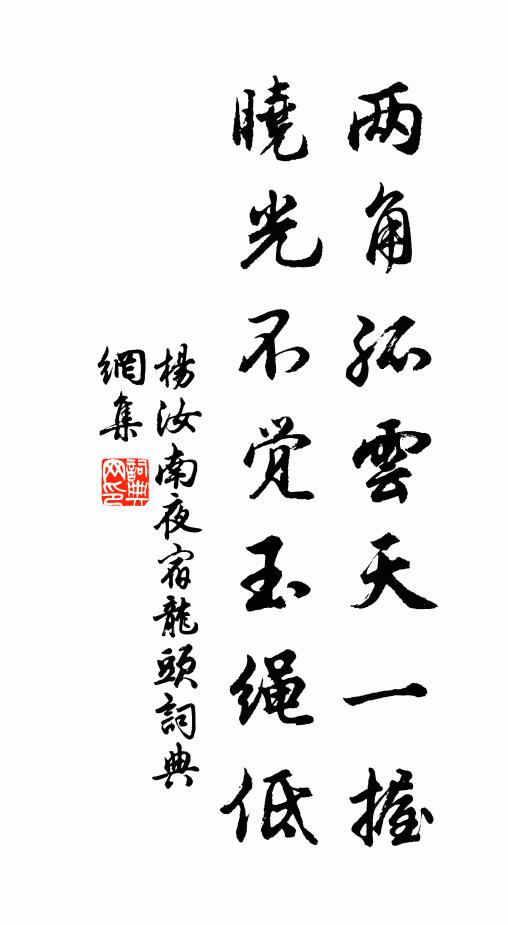 两角孤雲天一握
曉光不覚玉绳低
楊汝南夜宿龍頭詞典
網集
詞典
网印